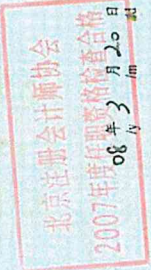 北京注册会计师协会
2007年度任职资格检查合格
08年3月20日
/y /m /d